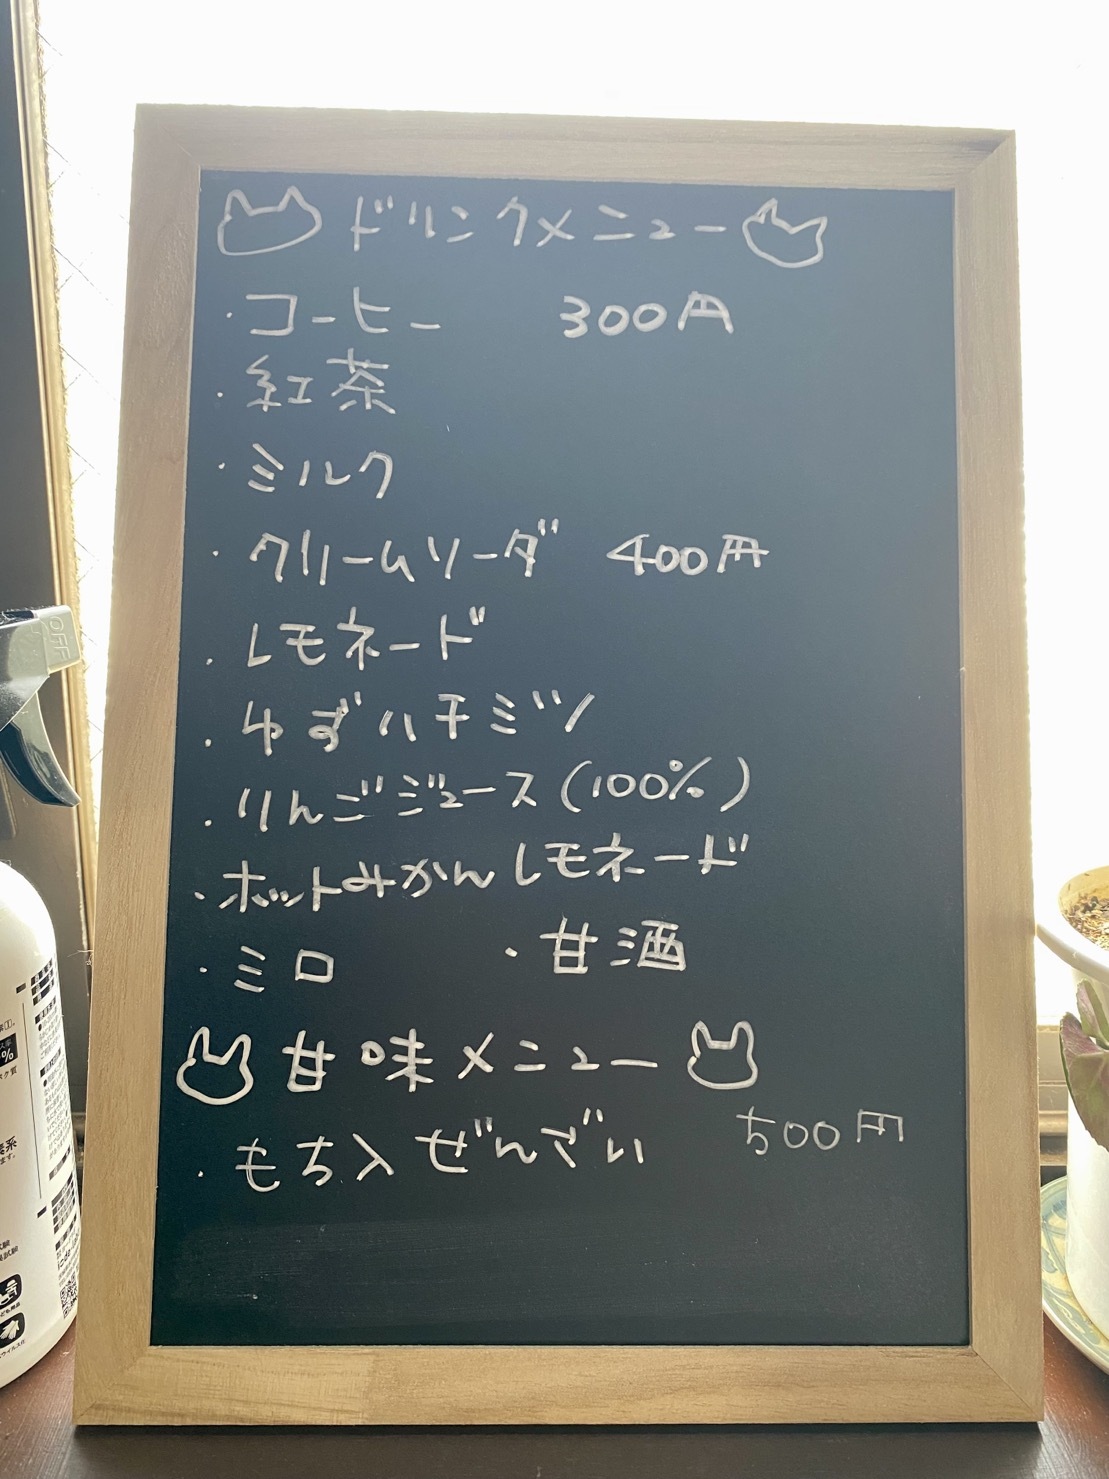 ドリンクメニュー
・コーヒー 300円
・紅茶
・ミルク
・クリームソーダ 400円
・レモネード
・ゆずハチミツ
・りんごジュース(100%)
・ホットみかんレモネード
・ミロ ・甘酒
甘味メニュー
・もち入ぜんざい 500円
OFF